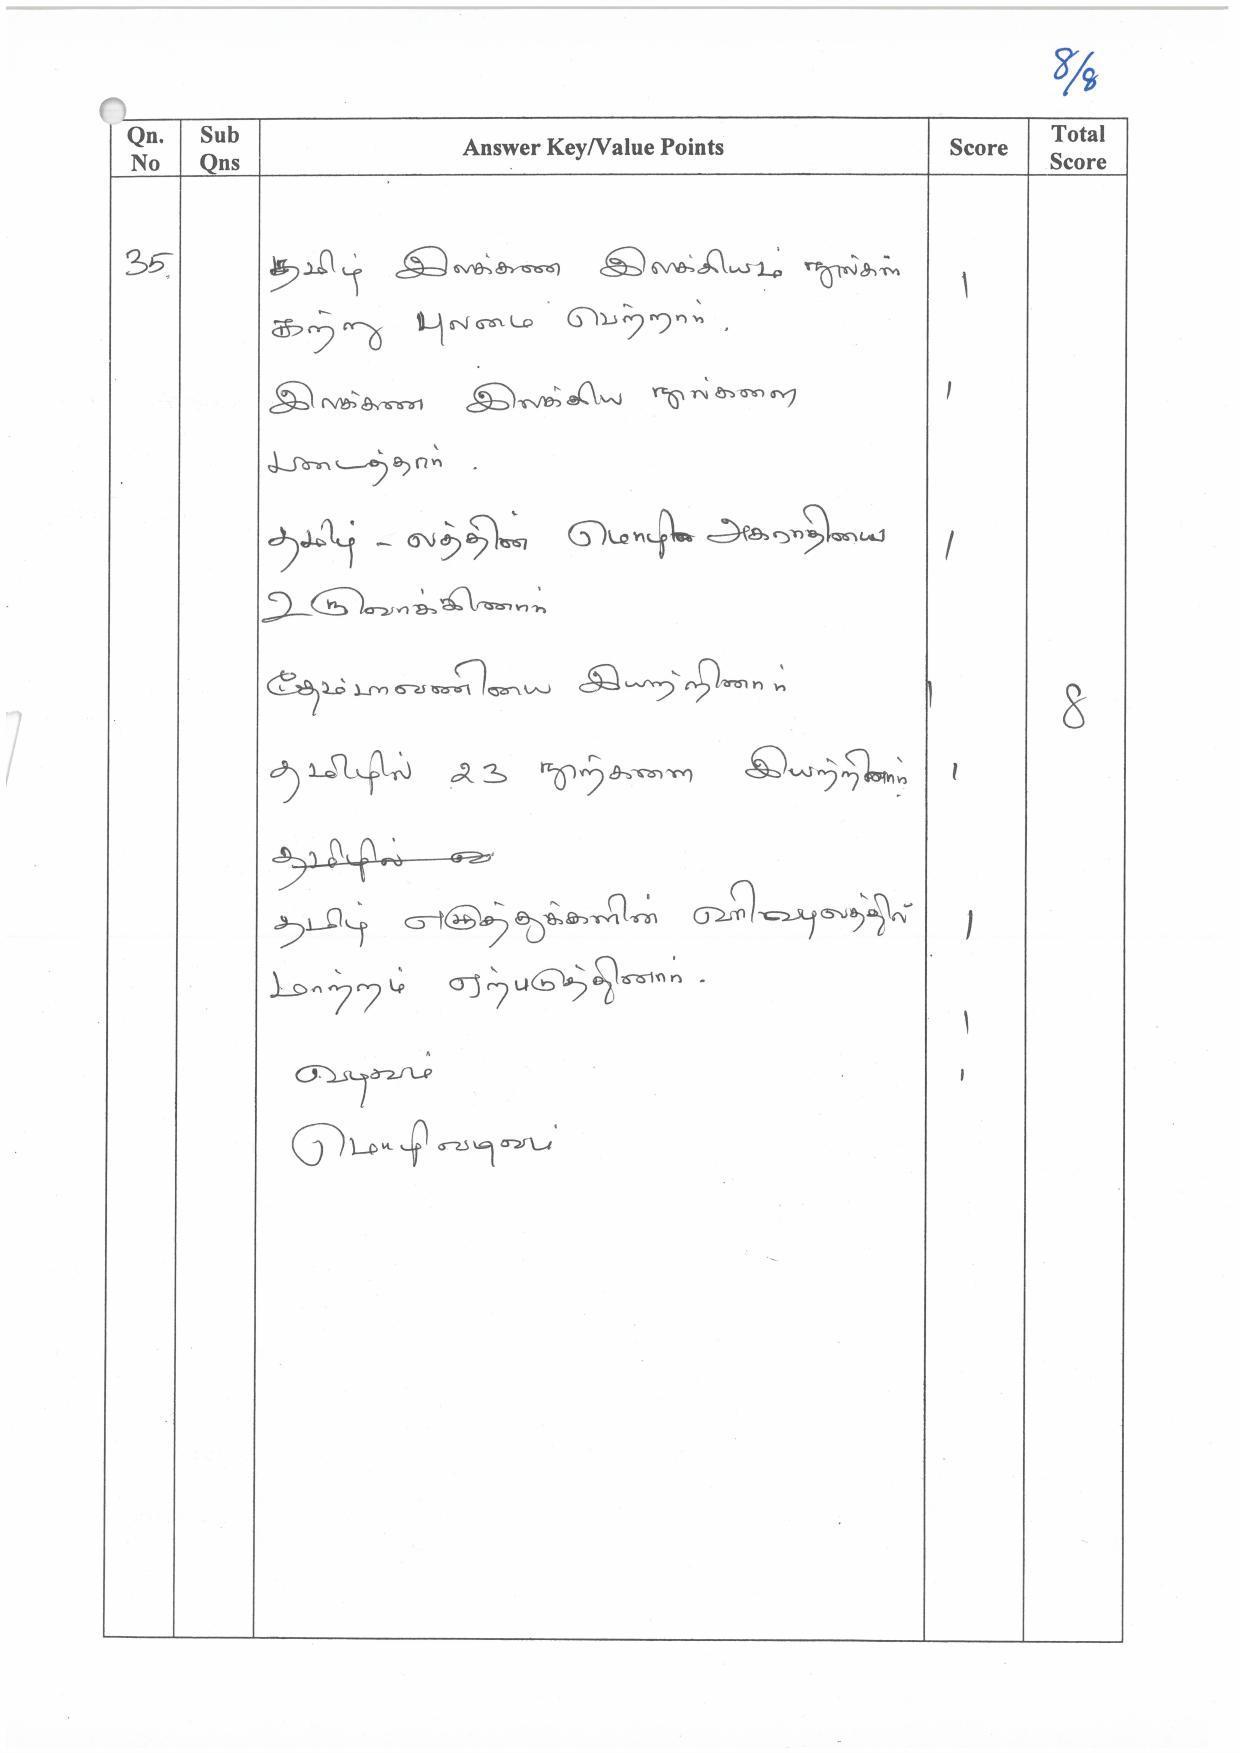 8/8
Qn. No | Sub Qns | Answer Key/Value Points | Score | Total Score
35. தமிழ் இலக்கண இலக்கியம் நூல்கள் 1
கற்று புலமை பெற்றார்.
இலக்கண இலக்கிய நூல்களை 1
படைத்தார்.
தமிழ் - லத்தின் மொழி அகராதியை 1
உருவாக்கினார்
தேம்பாவணியை இயற்றினார் 1 8
தமிழில் 23 நூற்களை இயற்றினார் 1
தமிழில்
தமிழ் எழுத்துக்களின் வரிவடிவத்தில் 1
மாற்றம் ஏற்படுத்தினார்.
1
வடிவம் 1
மொழிவடிவம்